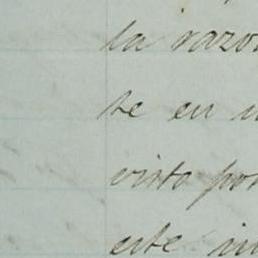 la razo
te en u
visto por
este in